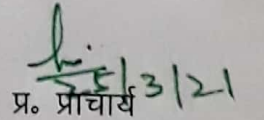 25/3/21
प्र० प्राचार्य